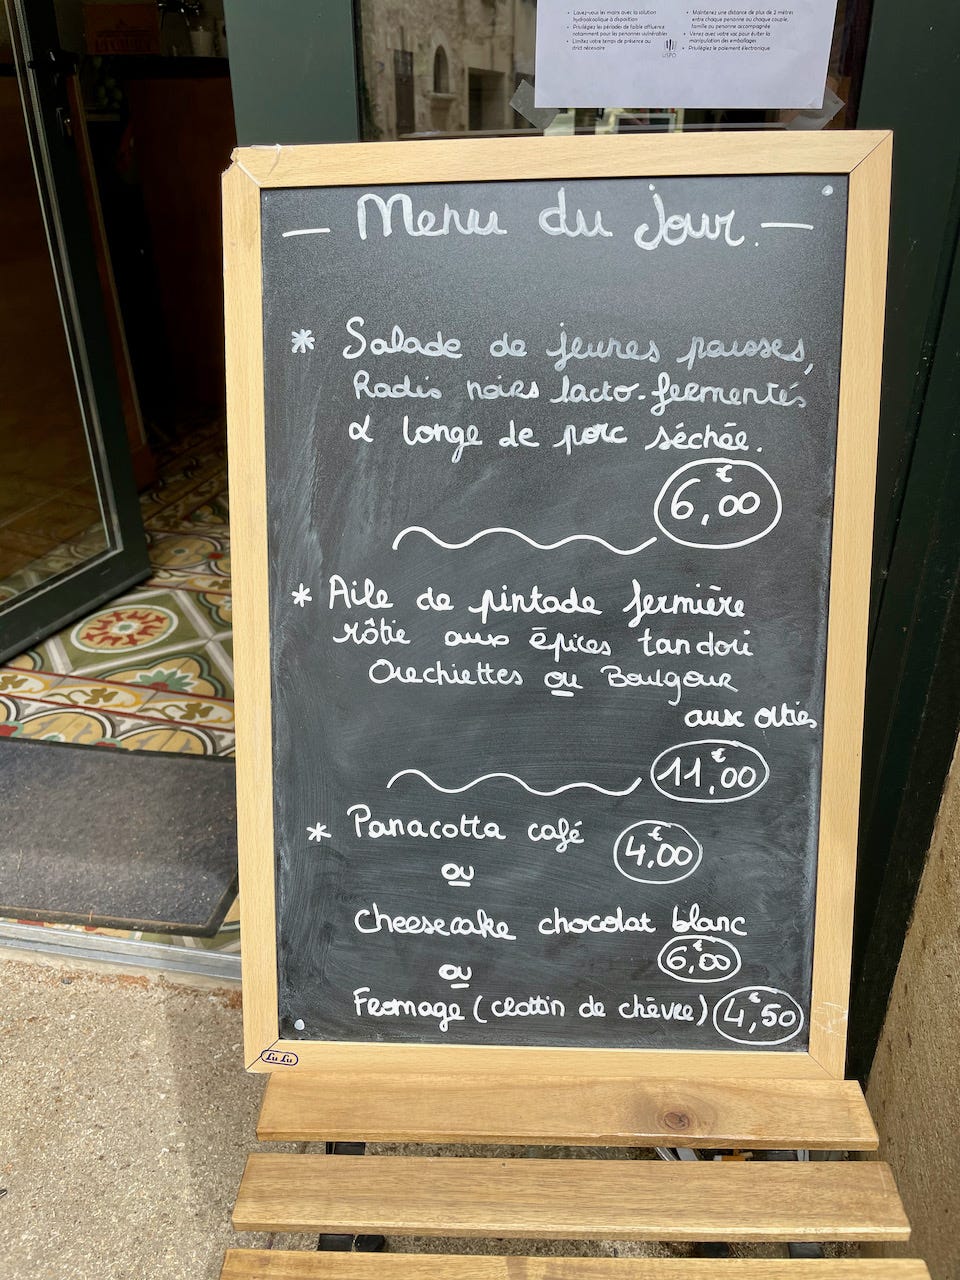 • Lavez-vous les mains avec la solution
hydroalcoolique à disposition
• Privilégiez les périodes de faible affluence
notamment pour les personnes vulnérables
• Limitez votre temps de présence au
strict nécessaire
• Maintenez une distance de plus de 2 mètres
entre chaque personne ou chaque couple,
famille ou personne accompagnée
• Venez avec votre sac pour éviter la
manipulation des emballages
• Privilégiez le paiement électronique
— Menu du jour. —
* Salade de jeunes pousses,
Radis noirs lacto-fermentés
& longe de porc séchée.
6,00 €
* Aile de pintade fermière
rôtie aux épices tandori
Orechiettes ou Boulgour
aux orties
11,00 €
* Panacotta café 4,00 €
ou
cheesecake chocolat blanc
6,00 €
ou
Fromage (crottin de chèvre) 4,50 €
Lu Lu